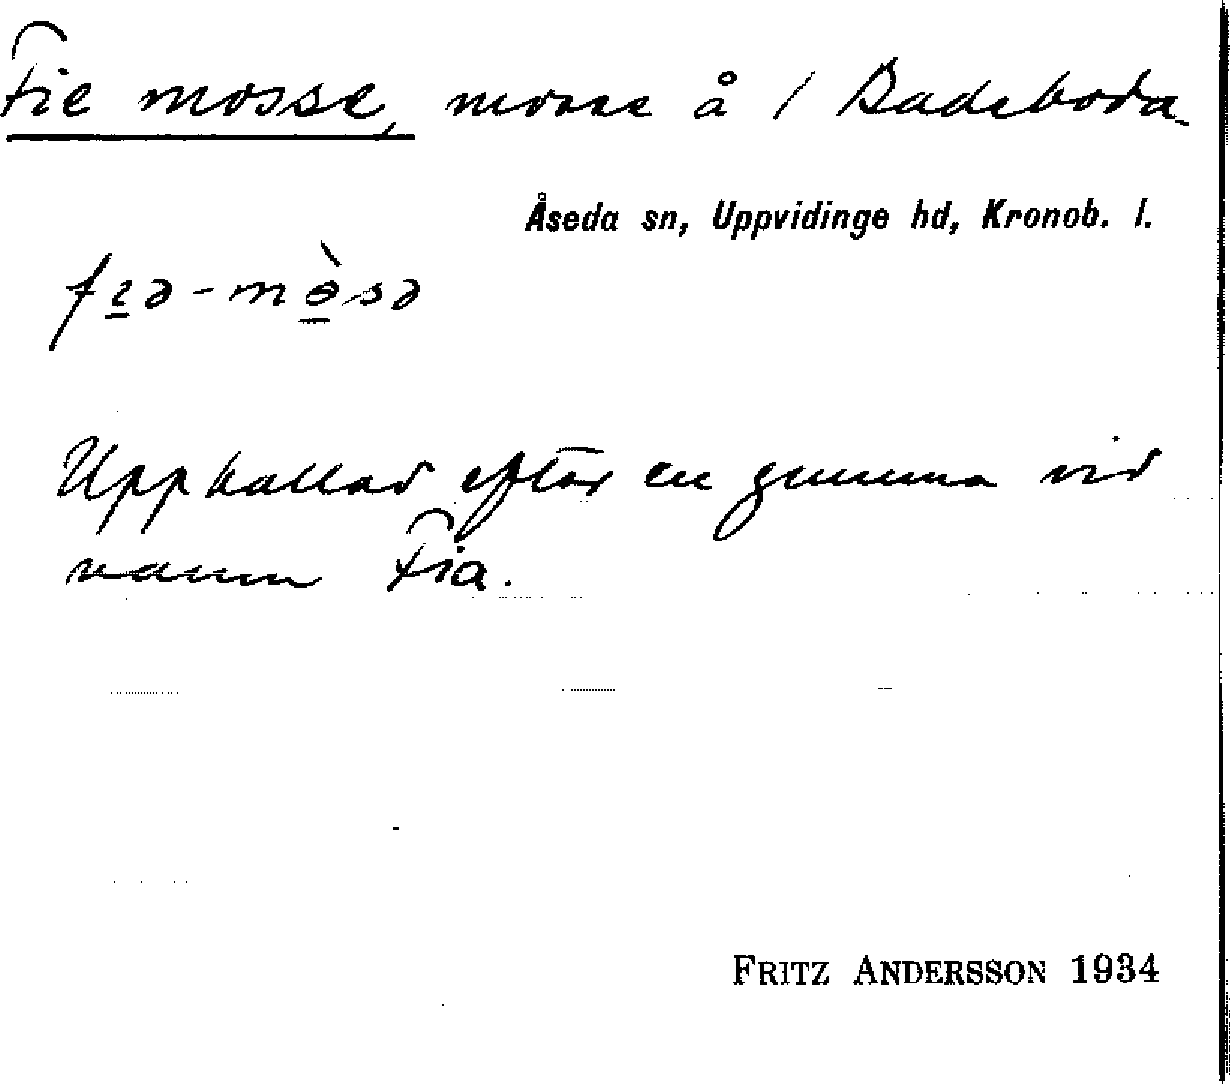 Fie mosse, mosse å / Badeboda
Åseda sn, Uppvidinge hd, Kronob. l.
Uppkallad efter en gumma vid
namn Fia.
FRITZ ANDERSSON 1934